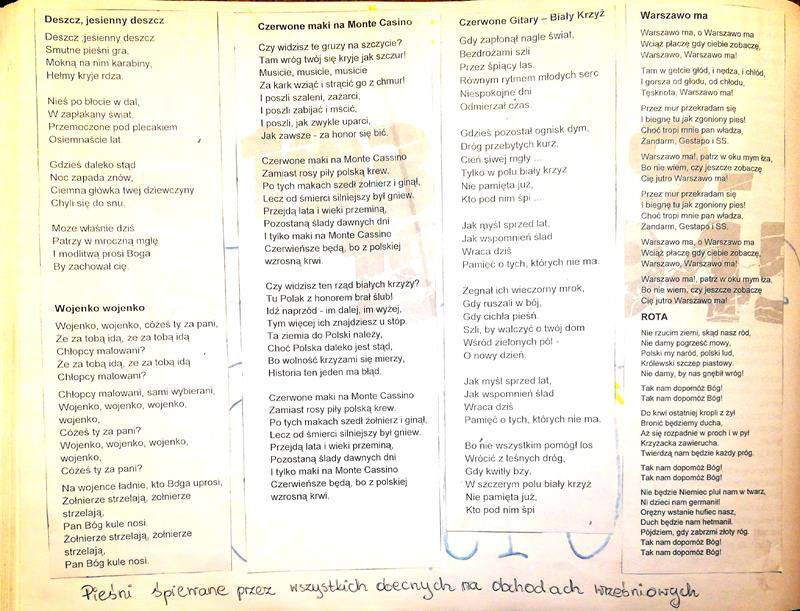 Deszcz, jesienny deszcz
Deszcz ,jesienny deszcz
Smutne pieśni gra,
Mokną na nim karabiny,
Hełmy kryje rdza.
Nieś po błocie w dal,
W zapłakany świat,
Przemoczone pod plecakiem
Osiemnaście lat.
Gdzieś daleko stąd
Noc zapada znów,
Ciemna główka twej dziewczyny
Chyli się do snu.
Może właśnie dziś
Patrzy w mroczną mgłę
I modlitwą prosi Boga
By zachował cię.
Wojenko wojenko
Wojenko, wojenko, cóżeś ty za pani,
Że za tobą idą, że za tobą idą
Chłopcy malowani?
Że za tobą idą, że za tobą idą
Chłopcy malowani?
Chłopcy malowani, sami wybierani,
Wojenko, wojenko, wojenko,
wojenko,
Cóżeś ty za pani?
Wojenko, wojenko, wojenko,
wojenko,
Cóżeś ty za pani?
Na wojence ładnie, kto Boga uprosi,
Żołnierze strzelają, żołnierze
strzelają,
Pan Bóg kule nosi.
Żołnierze strzelają, żołnierze
strzelają,
Pan Bóg kule nosi.
Czerwone maki na Monte Casino
Czy widzisz te gruzy na szczycie?
Tam wróg twój się kryje jak szczur!
Musicie, musicie, musicie
Za kark wziąć i strącić go z chmur!
I poszli szaleni, zażarci,
I poszli zabijać i mścić,
I poszli, jak zwykle uparci,
Jak zawsze - za honor się bić.
Czerwone maki na Monte Cassino
Zamiast rosy piły polską krew.
Po tych makach szedł żołnierz i ginął,
Lecz od śmierci silniejszy był gniew.
Przejdą lata i wieki przeminą,
Pozostaną ślady dawnych dni
I tylko maki na Monte Cassino
Czerwieńsze będą, bo z polskiej
wzrosną krwi.
Czy widzisz ten rząd białych krzyży?
Tu Polak z honorem brał ślub!
Idź naprzód - im dalej, im wyżej,
Tym więcej ich znajdziesz u stóp.
Ta ziemia do Polski należy,
Choć Polska daleko jest stąd,
Bo wolność krzyżami się mierzy,
Historia ten jeden ma błąd.
Czerwone maki na Monte Cassino
Zamiast rosy piły polską krew.
Po tych makach szedł żołnierz i ginął,
Lecz od śmierci silniejszy był gniew.
Przejdą lata i wieki przeminą,
Pozostaną ślady dawnych dni
I tylko maki na Monte Cassino
Czerwieńsze będą, bo z polskiej
wzrosną krwi.
Czerwone Gitary – Biały Krzyż
Gdy zapłonął nagle świat,
Bezdrożami szli
Przez śpiący las.
Równym rytmem młodych serc
Niespokojne dni
Odmierzał czas.
Gdzieś pozostał ognisk dym,
Dróg przebytych kurz,
Cień siwej mgły ...
Tylko w polu biały krzyż
Nie pamięta już,
Kto pod nim śpi ...
Jak myśl sprzed lat,
Jak wspomnień ślad
Wraca dziś
Pamięć o tych, których nie ma.
Żegnał ich wieczorny mrok,
Gdy ruszali w bój,
Gdy cichła pieśń.
Szli, by walczyć o twój dom
Wśród zielonych pól -
O nowy dzień.
Jak myśl sprzed lat,
Jak wspomnień ślad
Wraca dziś
Pamięć o tych, których nie ma.
Bo nie wszystkim pomógł los
Wrócić z leśnych dróg,
Gdy kwitły bzy.
W szczerym polu biały krzyż
Nie pamięta już,
Kto pod nim śpi
Warszawo ma
Warszawo ma, o Warszawo ma
Wciąż płaczę gdy ciebie zobaczę,
Warszawo, Warszawo ma!
Tam w getcie głód, i nędza, i chłód,
I gorsza od głodu, od chłodu,
Tęsknota, Warszawo ma!
Przez mur przekradam się
I biegnę tu jak zgoniony pies!
Choć tropi mnie pan władza,
Żandarm, Gestapo i SS.
Warszawo ma!, patrz w oku mym łza,
Bo nie wiem, czy jeszcze zobaczę
Cię jutro Warszawo ma!
Przez mur przekradam się
I biegnę tu jak zgoniony pies!
Choć tropi mnie pan władza,
Żandarm, Gestapo i SS.
Warszawo ma, o Warszawo ma
Wciąż płaczę gdy ciebie zobaczę,
Warszawo, Warszawo ma!
Warszawo ma!, patrz w oku mym łza,
Bo nie wiem, czy jeszcze zobaczę
Cię jutro Warszawo ma!
ROTA
Nie rzucim ziemi, skąd nasz ród,
Nie damy pogrześć mowy,
Polski my naród, polski lud,
Królewski szczep piastowy.
Nie damy, by nas gnębił wróg!
Tak nam dopomóż Bóg!
Tak nam dopomóż Bóg!
Do krwi ostatniej kropli z żył
Bronić będziemy ducha,
Aż się rozpadnie w proch i w pył
Krzyżacka zawierucha.
Twierdzą nam będzie każdy próg.
Tak nam dopomóż Bóg!
Tak nam dopomóż Bóg!
Nie będzie Niemiec pluł nam w twarz,
Ni dzieci nam germanił!
Orężny wstanie hufiec nasz,
Duch będzie nam hetmanił.
Pójdziem, gdy zabrzmi złoty róg.
Tak nam dopomóż Bóg!
Tak nam dopomóż Bóg!
Pieśni śpiewane przez wszystkich obecnych na obchodach wrześniowych